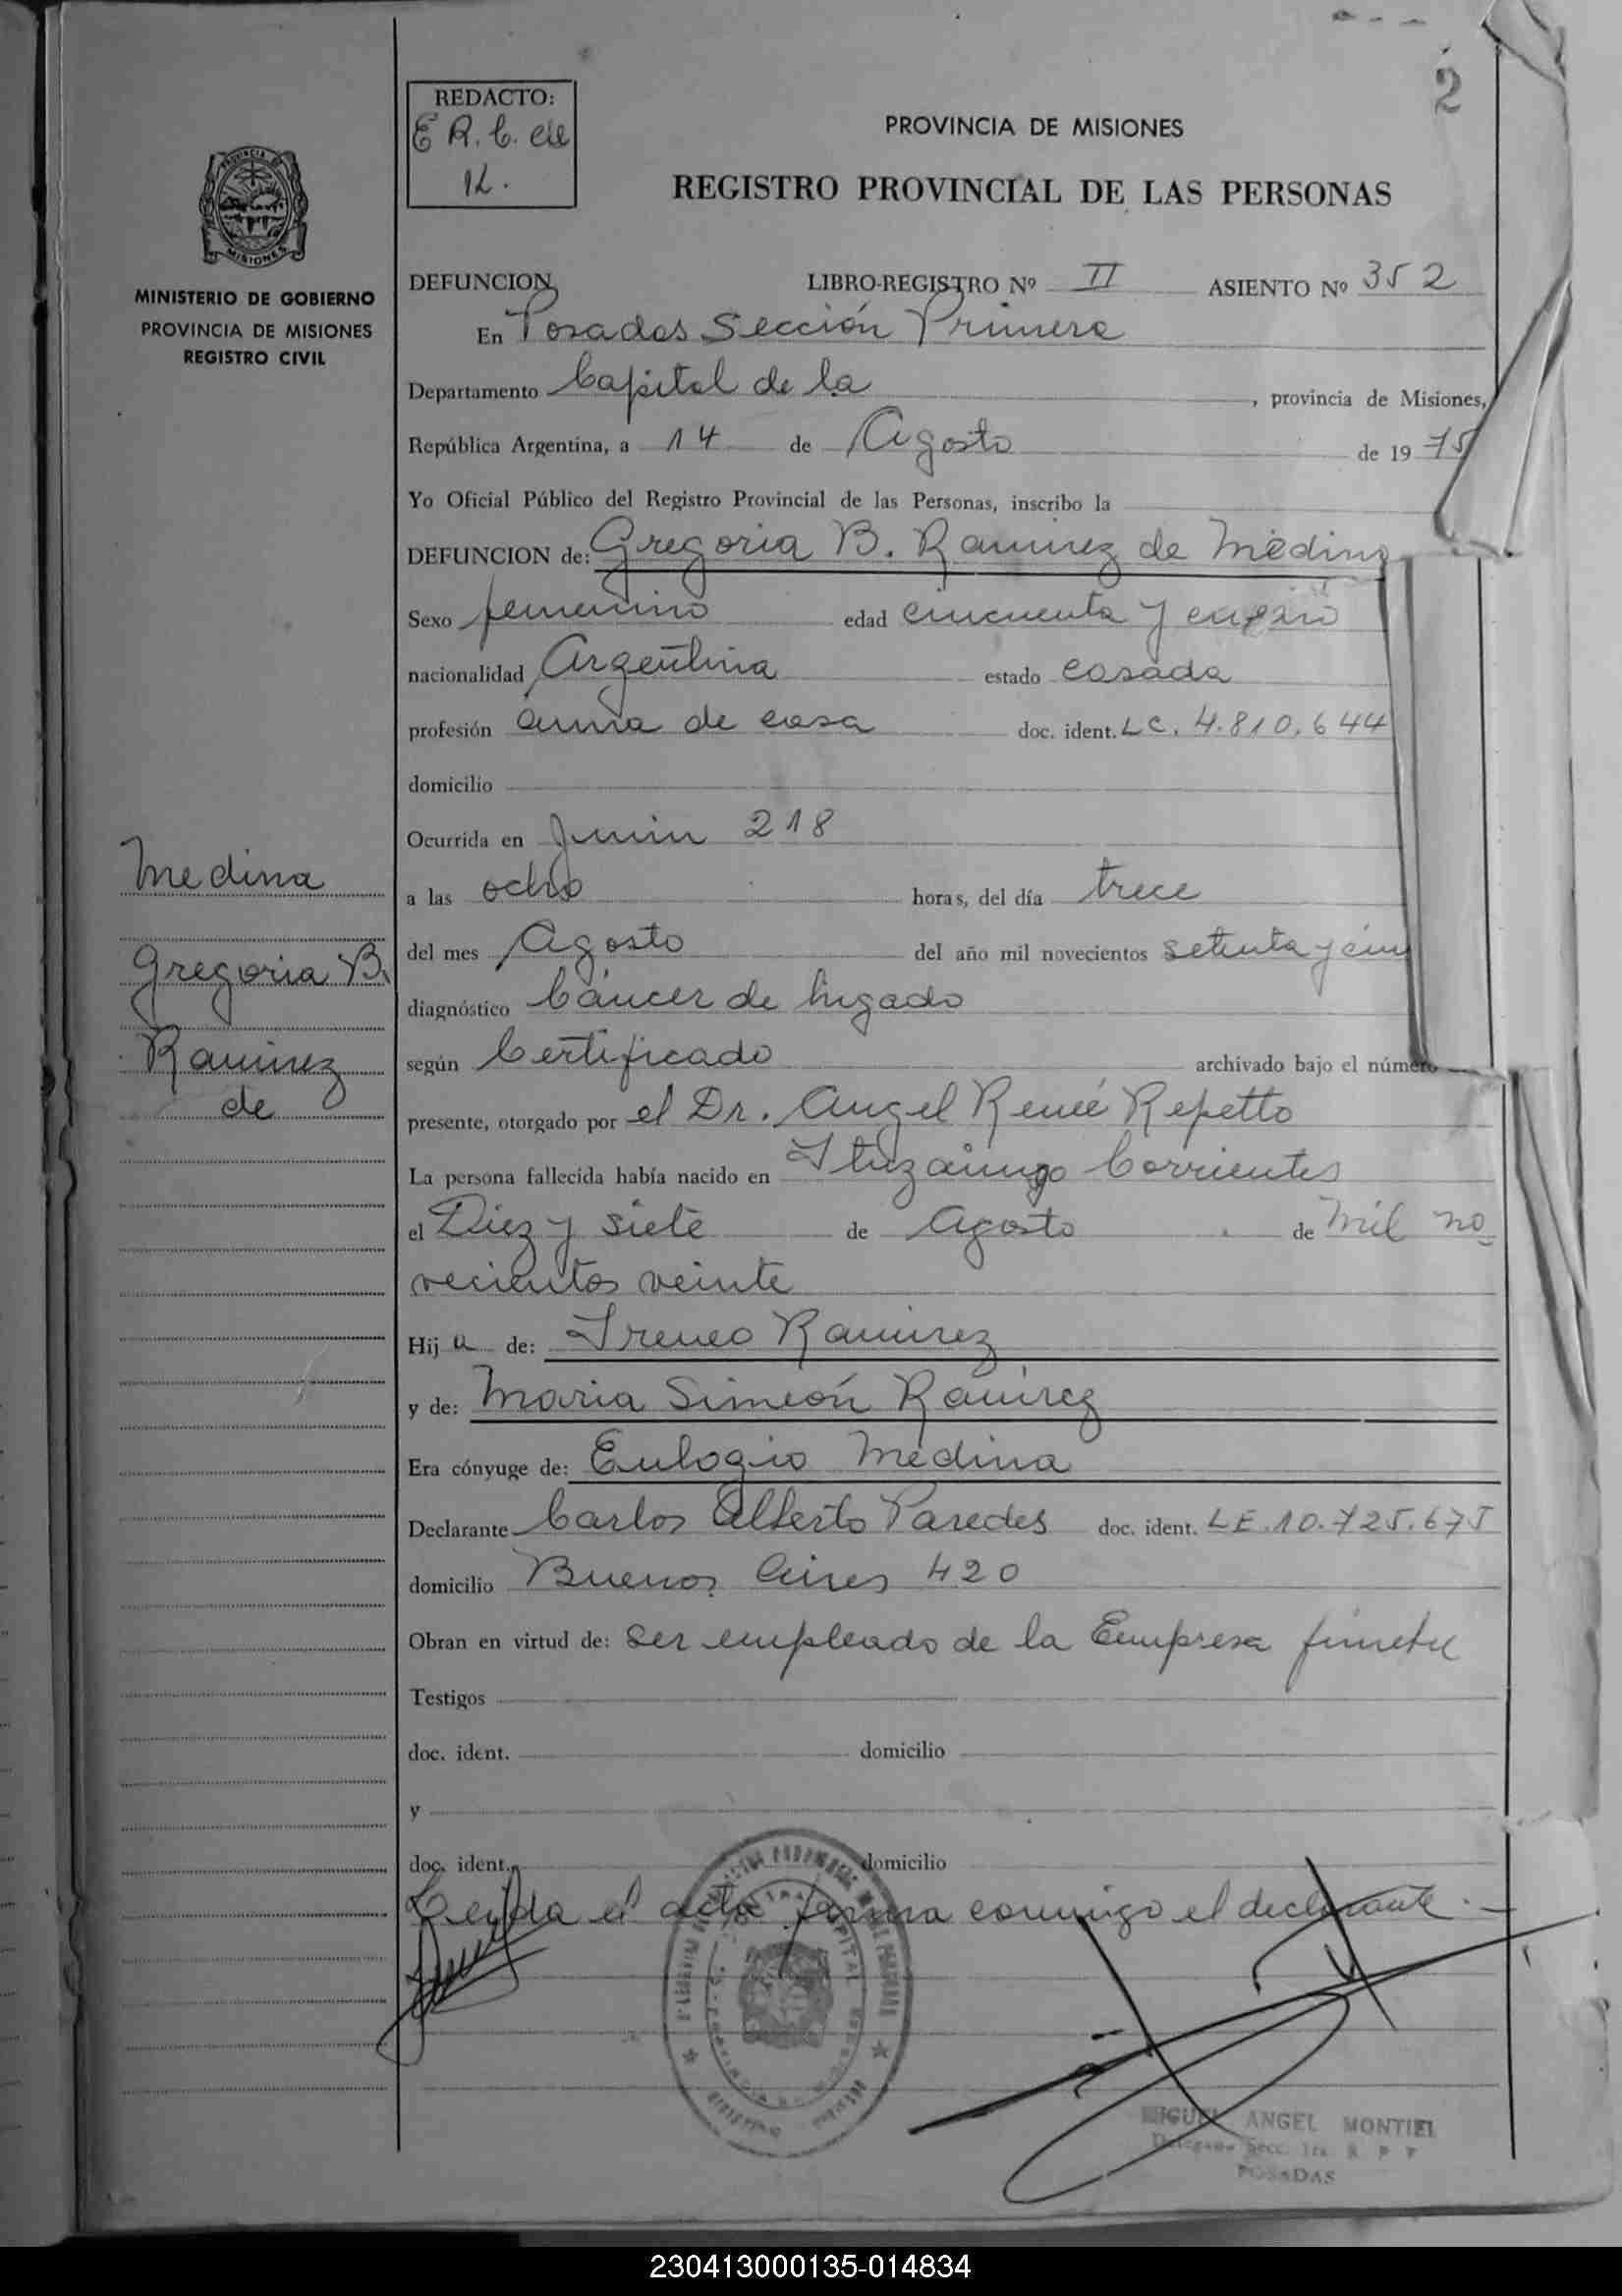 2
REDACTO:
E R. C. de
12.
PROVINCIA DE MISIONES
REGISTRO PROVINCIAL DE LAS PERSONAS
PROVINCIA DE
MISIONES
MINISTERIO DE GOBIERNO
PROVINCIA DE MISIONES
REGISTRO CIVIL
DEFUNCION LIBRO-REGISTRO Nº II ASIENTO Nº 352
En Posadas Sección Primera
Departamento Capital de la , provincia de Misiones,
República Argentina, a 14 de Agosto de 1975
Yo Oficial Público del Registro Provincial de las Personas, inscribo la
DEFUNCION de: Gregoria B. Ramirez de Medina
Sexo femenino edad cincuenta y cuatro
nacionalidad Argentina estado casada
profesión ama de casa doc. ident. LC. 4.810.644
domicilio
Ocurrida en Junin 218
a las ocho horas, del día trece
del mes Agosto del año mil novecientos setenta y cin
diagnóstico Cáncer de higado
según Certificado archivado bajo el número
presente, otorgado por el Dr. Angel Reneé Repetto
La persona fallecida había nacido en Ituzaingo Corrientes
el Diez y siete de Agosto de Mil no
vecientos veinte
Hija de: Ireneo Ramirez
y de: Maria Simeón Ramirez
Era cónyuge de: Eulogio Medina
Declarante Carlos Alberto Paredes doc. ident. LE.10.725.675
domicilio Buenos Aires 420
Obran en virtud de: ser empleado de la Empresa funebre
Testigos
doc. ident. domicilio
y
doc. ident. domicilio
Leida el acta firma conmigo el declarante.-
Medina
Gregoria B.
Ramirez
de
MIGUEL ANGEL MONTIEL
Delegado Secc. 1ra. R P P
POSADAS
230413000135-014834